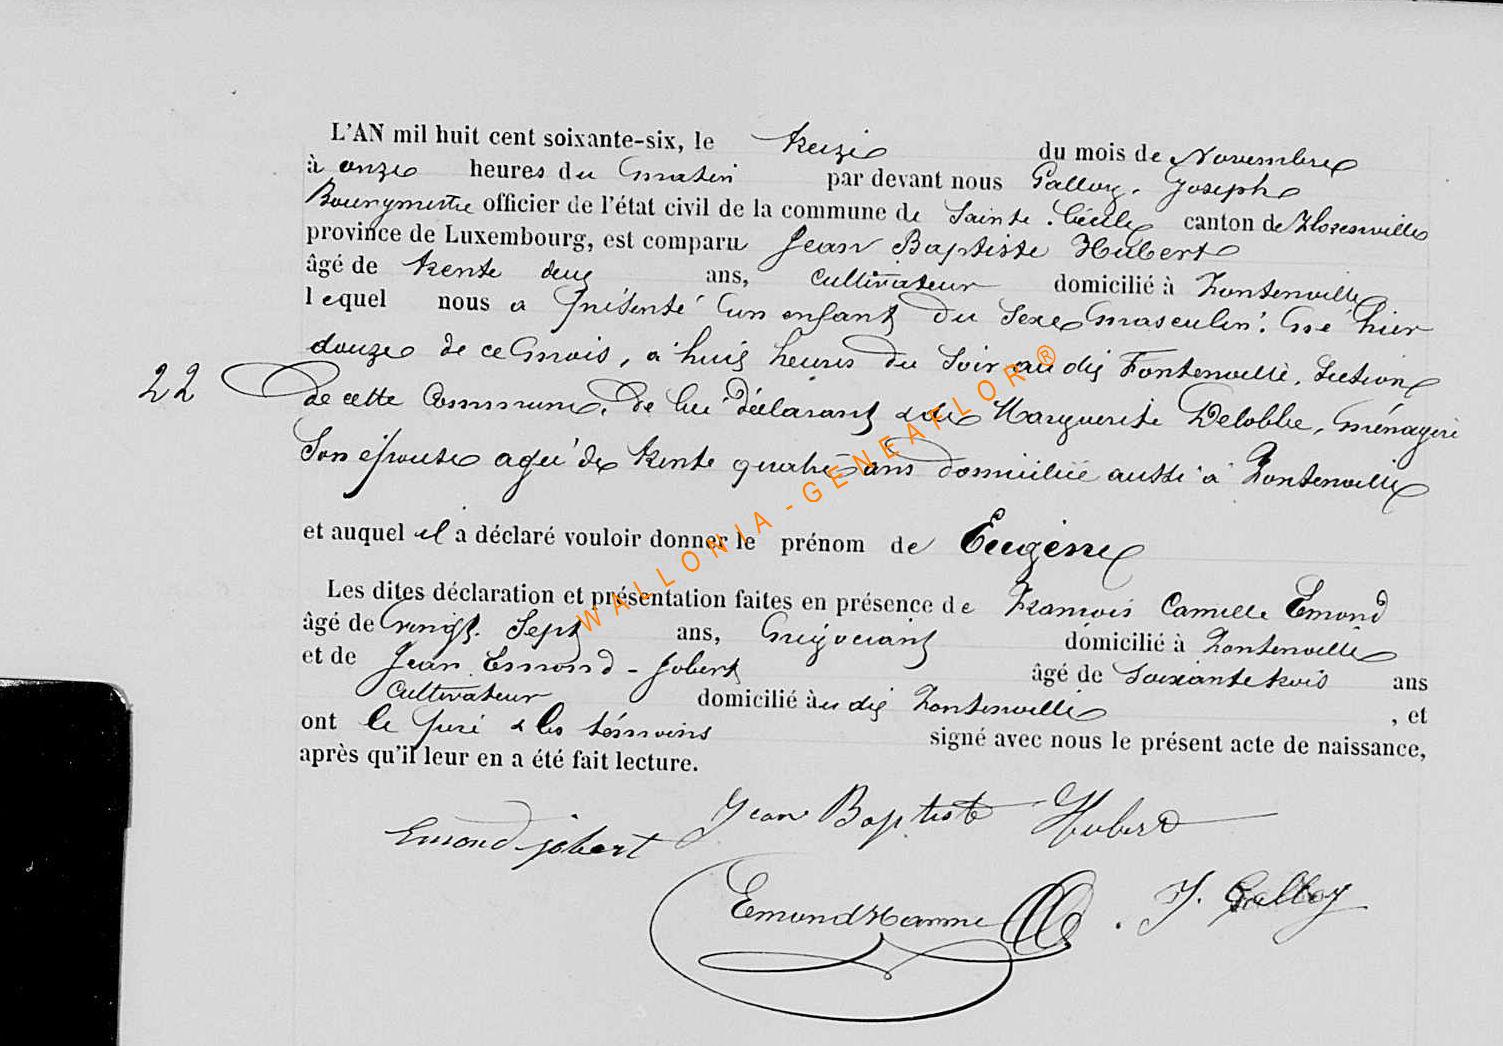 L'AN mil huit cent soixante-six, le treize du mois de Novembre
à onze heures du matin par devant nous Galloy, Joseph
Bourgmestre officier de l'état civil de la commune de Sainte-Cécile canton de Florenville
province de Luxembourg, est comparu Jean Baptiste Hubert
âgé de trente deux ans, cultivateur domicilié à Fontenoille
lequel nous a présenté un enfant du sexe masculin, né hier
douze de ce mois, à huit heures du soir au dit Fontenoille, section
22 de cette commune, de lui déclarant & de Marguerite Delobbe, ménagère
son épouse agée de trente quatre ans domiciliée aussi à Fontenoille
et auquel il a déclaré vouloir donner le prénom de Eugène
Les dites déclaration et présentation faites en présence de François Camille Emond
âgé de vingt-sept ans, négociant domicilié à Fontenoille
et de Jean Emond-Jobert âgé de soixante trois ans
cultivateur domicilié à au dit Fontenoille, et
ont le père & les témoins signé avec nous le présent acte de naissance,
après qu'il leur en a été fait lecture.
Jean Baptiste Hubert
Emond-jobert
Emond Hanme J. Galloy
WALLONIA - GENEAFLOR ®